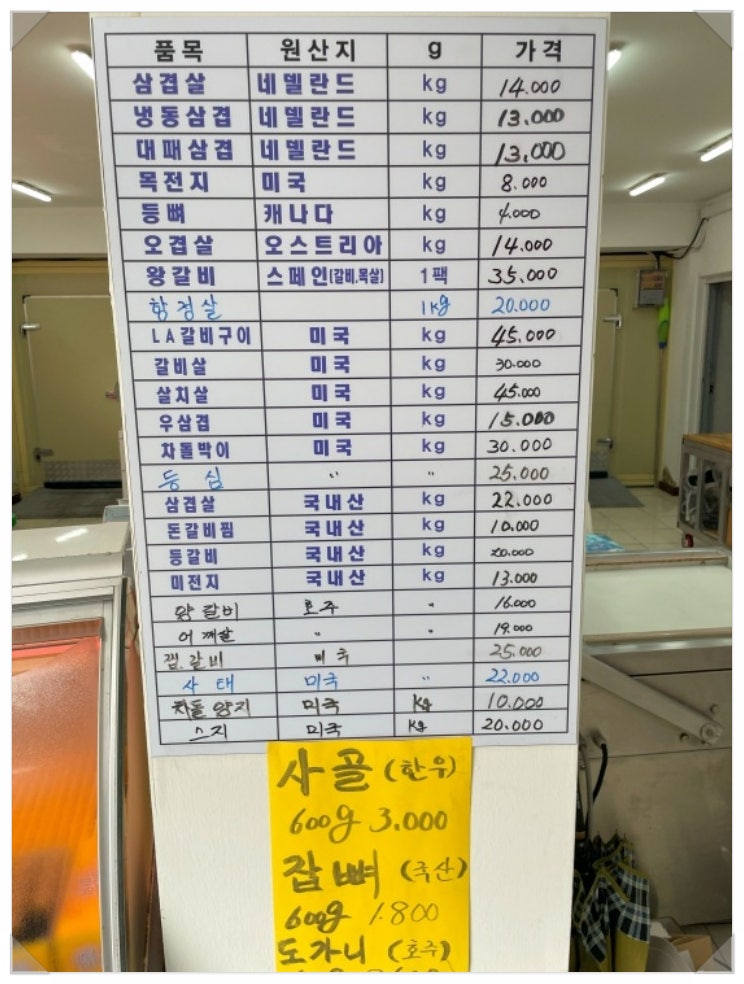 품목 원산지 g 가격
삼겹살 네델란드 kg 14.000
냉동삼겹 네델란드 kg 13.000
대패삼겹 네델란드 kg 13,000
목전지 미국 kg 8.000
등뼈 캐나다 kg 4.000
오겹살 오스트리아 kg 14.000
왕갈비 스페인(갈비.목살) 1팩 35.000
항정살 1kg 20.000
LA갈비구이 미국 kg 45.000
갈비살 미국 kg 30.000
살치살 미국 kg 45.000
우삼겹 미국 kg 15.000
차돌박이 미국 kg 30.000
등심 〃 〃 25.000
삼겹살 국내산 kg 22.000
돈갈비찜 국내산 kg 10.000
등갈비 국내산 kg 20.000
미전지 국내산 kg 13.000
양갈비 호주 〃 16.000
어깨살 〃 〃 19.000
찜.갈비 미국 25.000
사태 미국 〃 22.000
차돌양지 미국 kg 10.000
스지 미국 kg 20.000
사골 (한우)
600g 3.000
잡뼈 (국산)
600g 1.800
도가니 (호주)